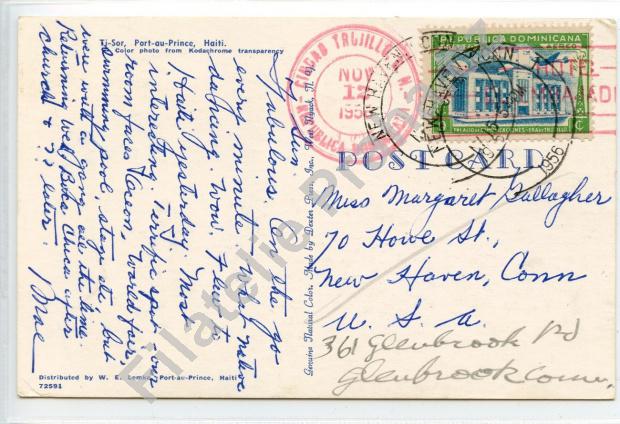 Ti-Sor, Port-au-Prince, Haiti.
Color photo from Kodachrome transparency
Sun
Fabulous. On the go
every minute & what native
dancing. Wow. Flew to
Haiti yesterday. Most
interesting. Terrific spot, our
room faces Casen, World fair,
swimming pool, stage etc. but
were with a gang all the time.
Returning via Boca Chica after
church & later.
Mae
Distributed by W. E. Lemke, Port-au-Prince, Haiti
72591
Genuine Natural Color. Made by Dexter Press, Inc., West Nyack, N. Y.
POSTCARD
CIUDAD TRUJILLO
NOV
12
195
REPUBLICA
REPUBLICA DOMINICANA
AEREO
PALACIO DE COMUNICACIONES - ERA DE TRUJILLO
NEW HAVEN, CONN.
1956
Miss Margaret Gallagher
70 Howe St.,
New Haven, Conn
U. S. A.
361 Glenbrook Rd
Glenbrook Conn.
Filatelie Pra